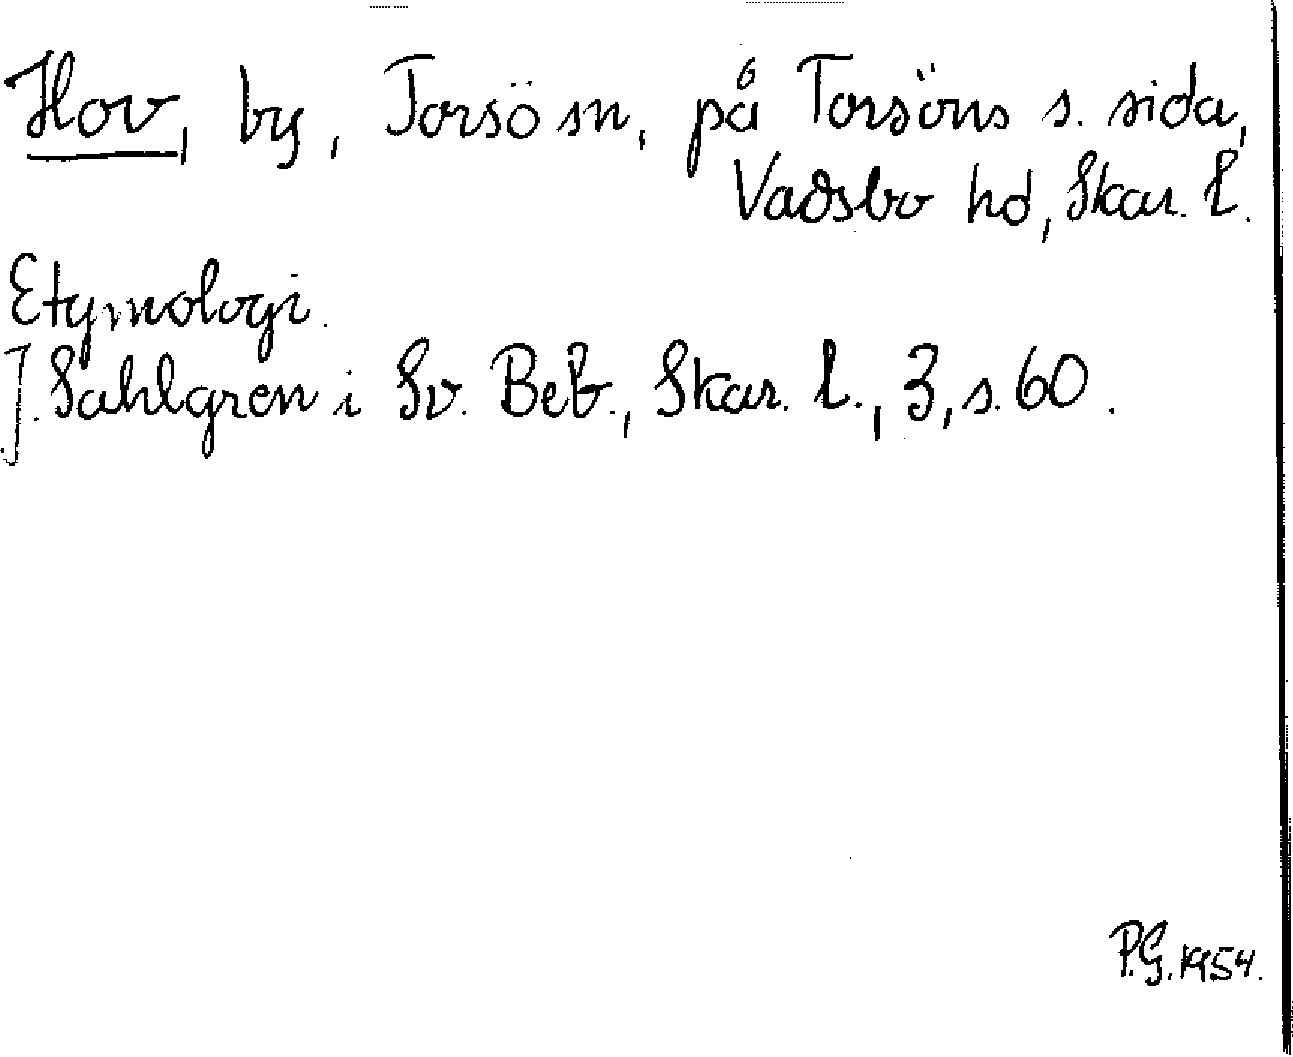 Hov, by, Torsö sn, på Torsöns s. sida,
Vadsbo hd, Skar. l.
Etymologi.
J. Sahlgren i Sv. Beb., Skar. l., 3, s. 60.
P.G. 1954.